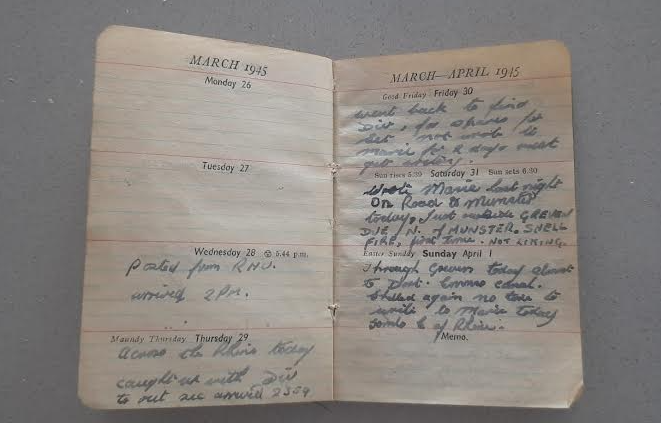 MARCH 1945
Monday 26
Tuesday 27
Wednesday 28 6.44 p.m.
Posted from RHU.
arrived 2PM.
Maundy Thursday Thursday 29
across the Rhine today
caught up with Div
to rest sec arrived 2359
MARCH—APRIL 1945
Good Friday Friday 30
went back to find
Div, for spares for
set not wrote to
Marie for 2 days must
Sun rises 5.39 Saturday 31 Sun sets 6.30
Wrote Marie last night
On Road to Munster
today, Just outside GREVEN
N. of MUNSTER, SHELL
FIRE, first time. NOT LIKING.
Easter Sunday Sunday April 1
Through Greven today almost
to canal.
Shelled again no time to
write to Marie today
of Rhine.
Memo.